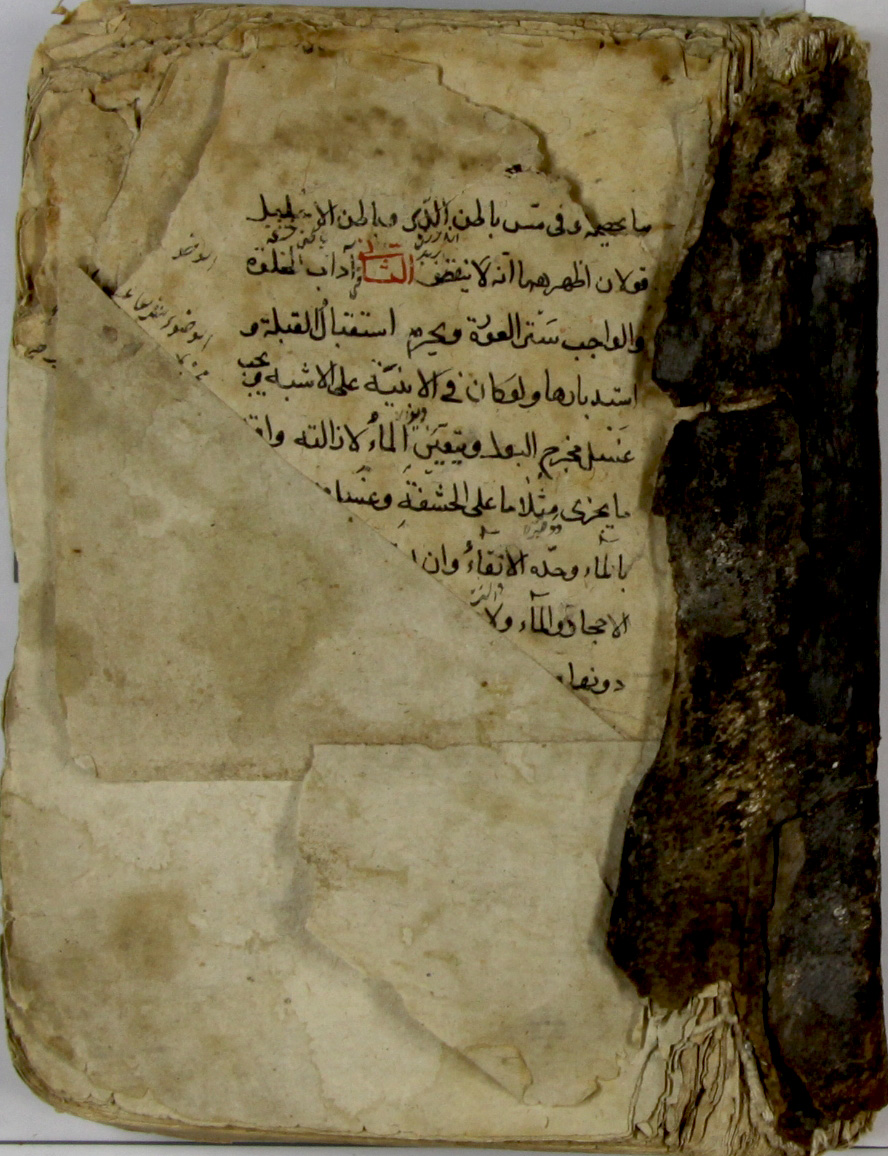 ما يصيبه وفي مس باطن الدبر وباطن الاحليل
قولان اظهرهما انه لا ينقض الثاني في آداب الخلوة
والواجب ستر العورة ويحرم استقبال القبلة و
استدبارها ولو كان في الابنية على الاشبه ويجب
غسل مخرج البول ويتعين الماء لازالته واقل
ما يجزى مثلا ما على الحشفة وغسل
بالماء وحده الانقاء وان
الاحجار والماء ولا
دونها